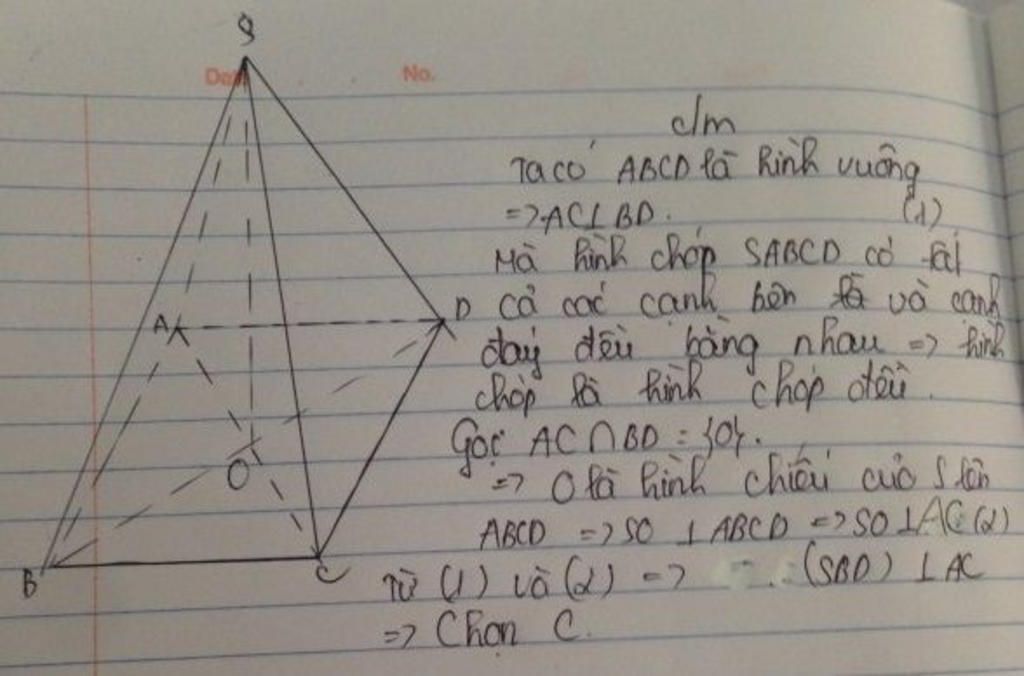 S
Date
No.
c/m
Ta có ABCD là hình vuông
=> AC ⊥ BD. (1)
Mà hình chóp SABCD có tất
cả các cạnh bên và cạnh
đáy đều bằng nhau => hình
chóp là hình chóp đều.
Gọi AC ∩ BD = {O}.
=> O là hình chiếu của S lên
ABCD => SO ⊥ ABCD => SO ⊥ AC (2)
Từ (1) và (2) => (SBD) ⊥ AC
=> Chọn C.
A
D
O
B
C